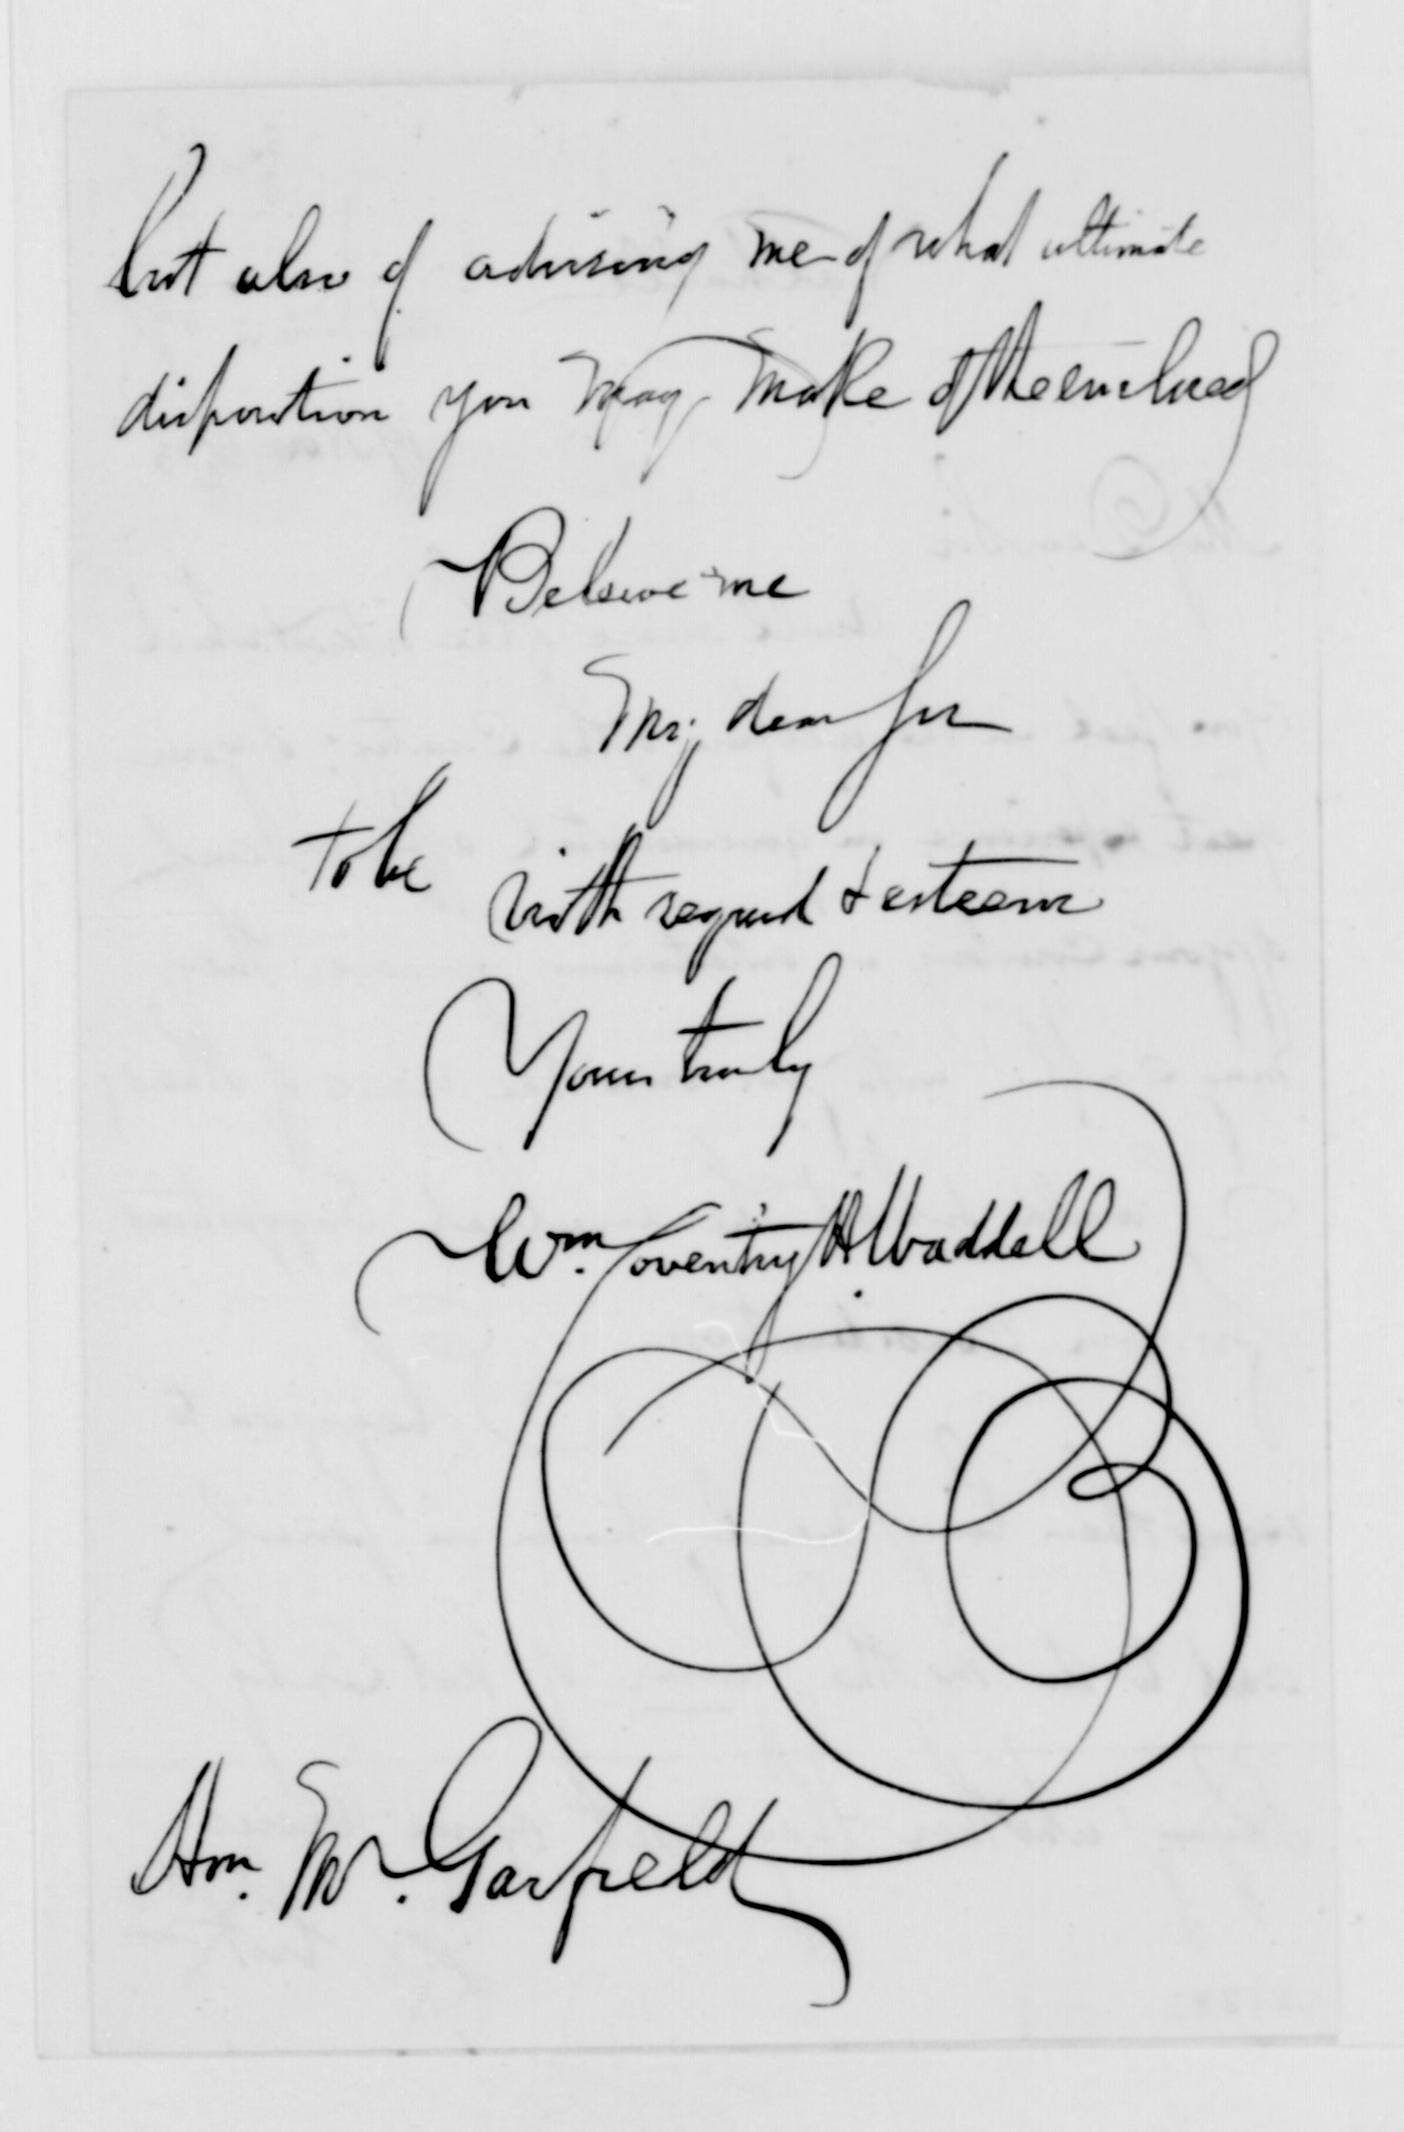 but also of advising me of what ultimate
disposition you may make of the enclosed
Believe me
My dear Sir
to be with regard & esteem
Yours truly
Wm. Coventry H. Waddell
Hon. Mr. Garfield